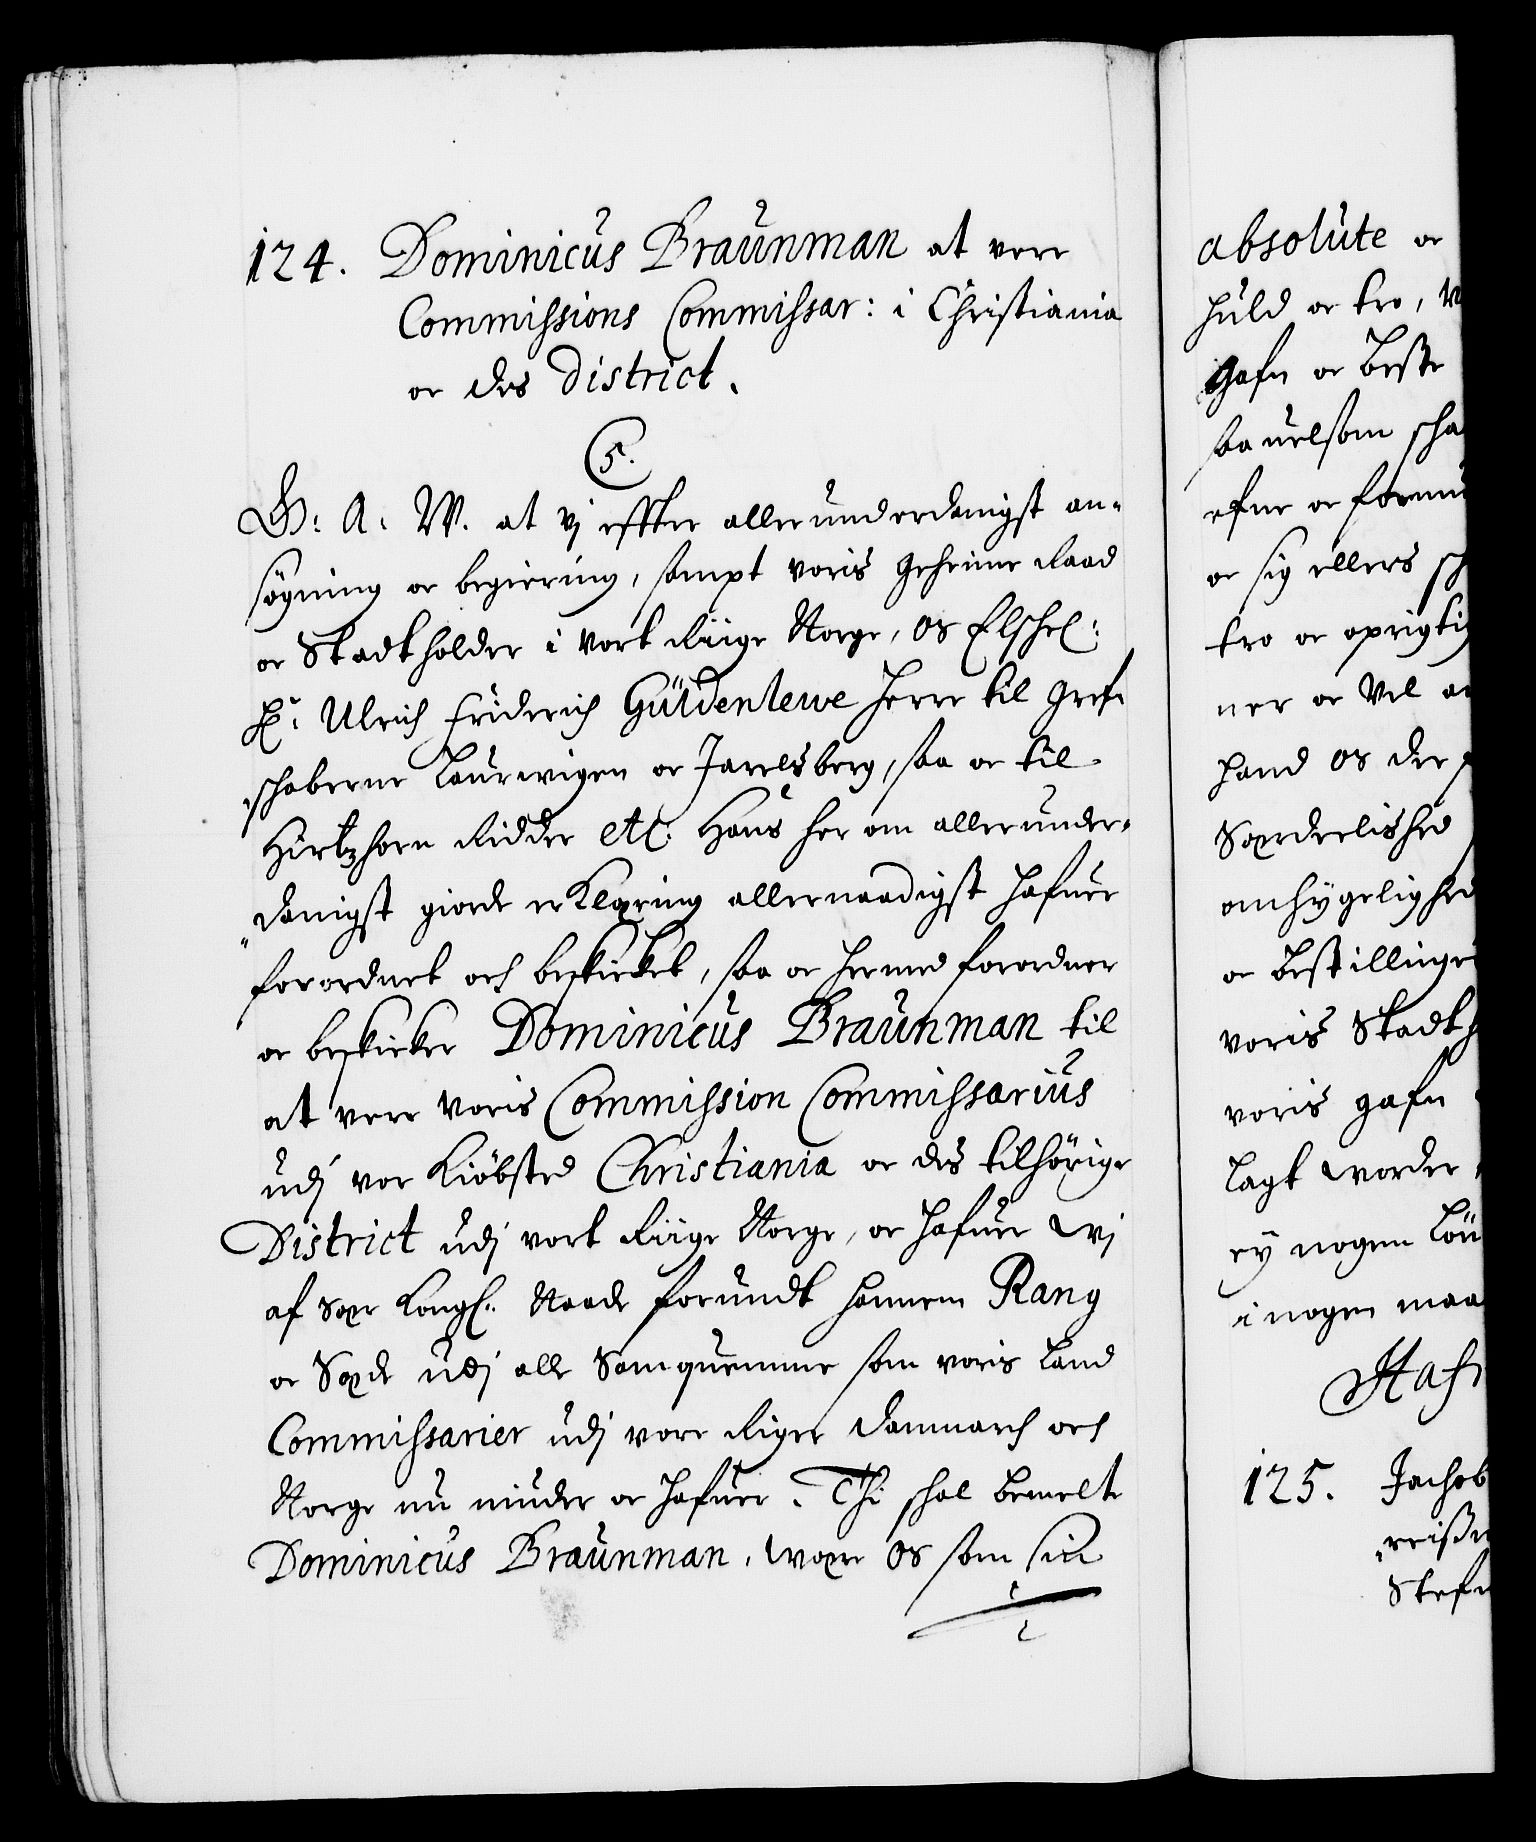 124. Dominicus Braünman at vere
Commissions Commissar: i Christiania
oc des District.
C 5.
G: A: W. at vj effter allerunderdanigst an-
søgning oc begiering, sampt voris geheime Raad
oc Stadtholder i vort Riige Norge, os Elschel:
Hr. Ulrich Friderich Güldenlewe Herre til Gref-
schaberne Laurwigen oc Jarelsberg, saa oc til
Hirtzhorn Ridder etc. Hans her om allerunder-
danigst giorde erKlæring allernaadigst hafuer
forordnet och beskicket, saa oc hermed forordner
oc beskicker Dominicus Braünman til
at vere Voris Commission Commissarius
udj vor Kiöbsted Christiania oc des tilhörige
District udj vort Riige Norge, oc hafuer wj
af Sær Kongl. Naade forundt hannem Rang
oc Sæde udj alle Samquemme som voris Land
Commissarier udj vore Riger Danmarch och
Norge nu niuder oc hafuer. Thi schal bemelte
Dominicus Braünman, wære os som sin
absolute oc
huld oc tro, V
gafn oc beste
saa velsom scha
efne oc formu
oc sig ellers sch
tro oc oprigti
ner oc Vel a
hand os der
Særdelished
omhygelighed
oc bestillinge
voris Stadth
voris gafn
lagt worder
ey nogen Lön
i nogen maa
Hafn
125. Jachob
Stefn